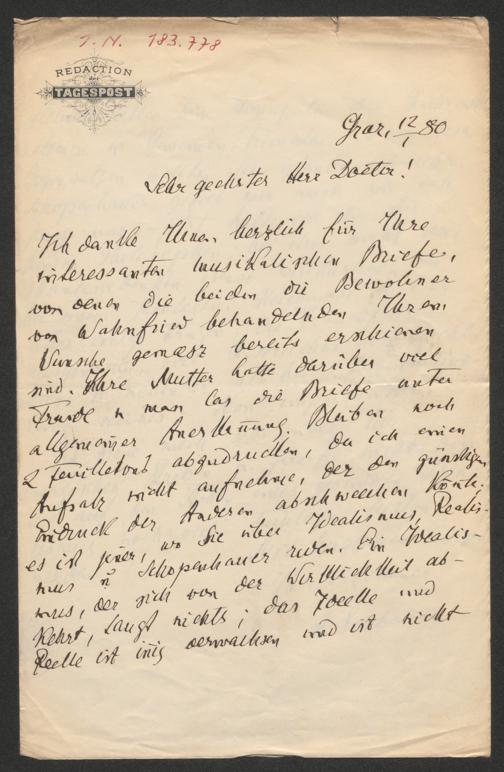 I. N. 183.778
REDACTION
der
TAGESPOST
Graz, 12/1 80
Sehr geehrter Herr Doctor!
Ich danke Ihnen herzlich für Ihre
interessanten musikalischen Briefe,
von denen die beiden die Bewohner
von Wahnfried behandelnden Ihrem
Wunsche gemäsz bereits erschienen
sind. Ihre Mutter hatte darüber viel
Freude u man las die Briefe unter
allgemeiner Anerkennung. Bleiben noch
2 Feuilletons abzudrucken, da ich einen
Aufsatz nicht aufnehme, der den günstigen
Eindruck der Anderen abschwächen könte.
es ist jener, wo Sie über Idealismus, Realis-
mus u Schopenhauer reden. Ein Idealis-
mus, der sich von der Wirklichkeit ab-
kehrt, taugt nichts; das Ideelle und
Reelle ist inig verwachsen und ist nicht